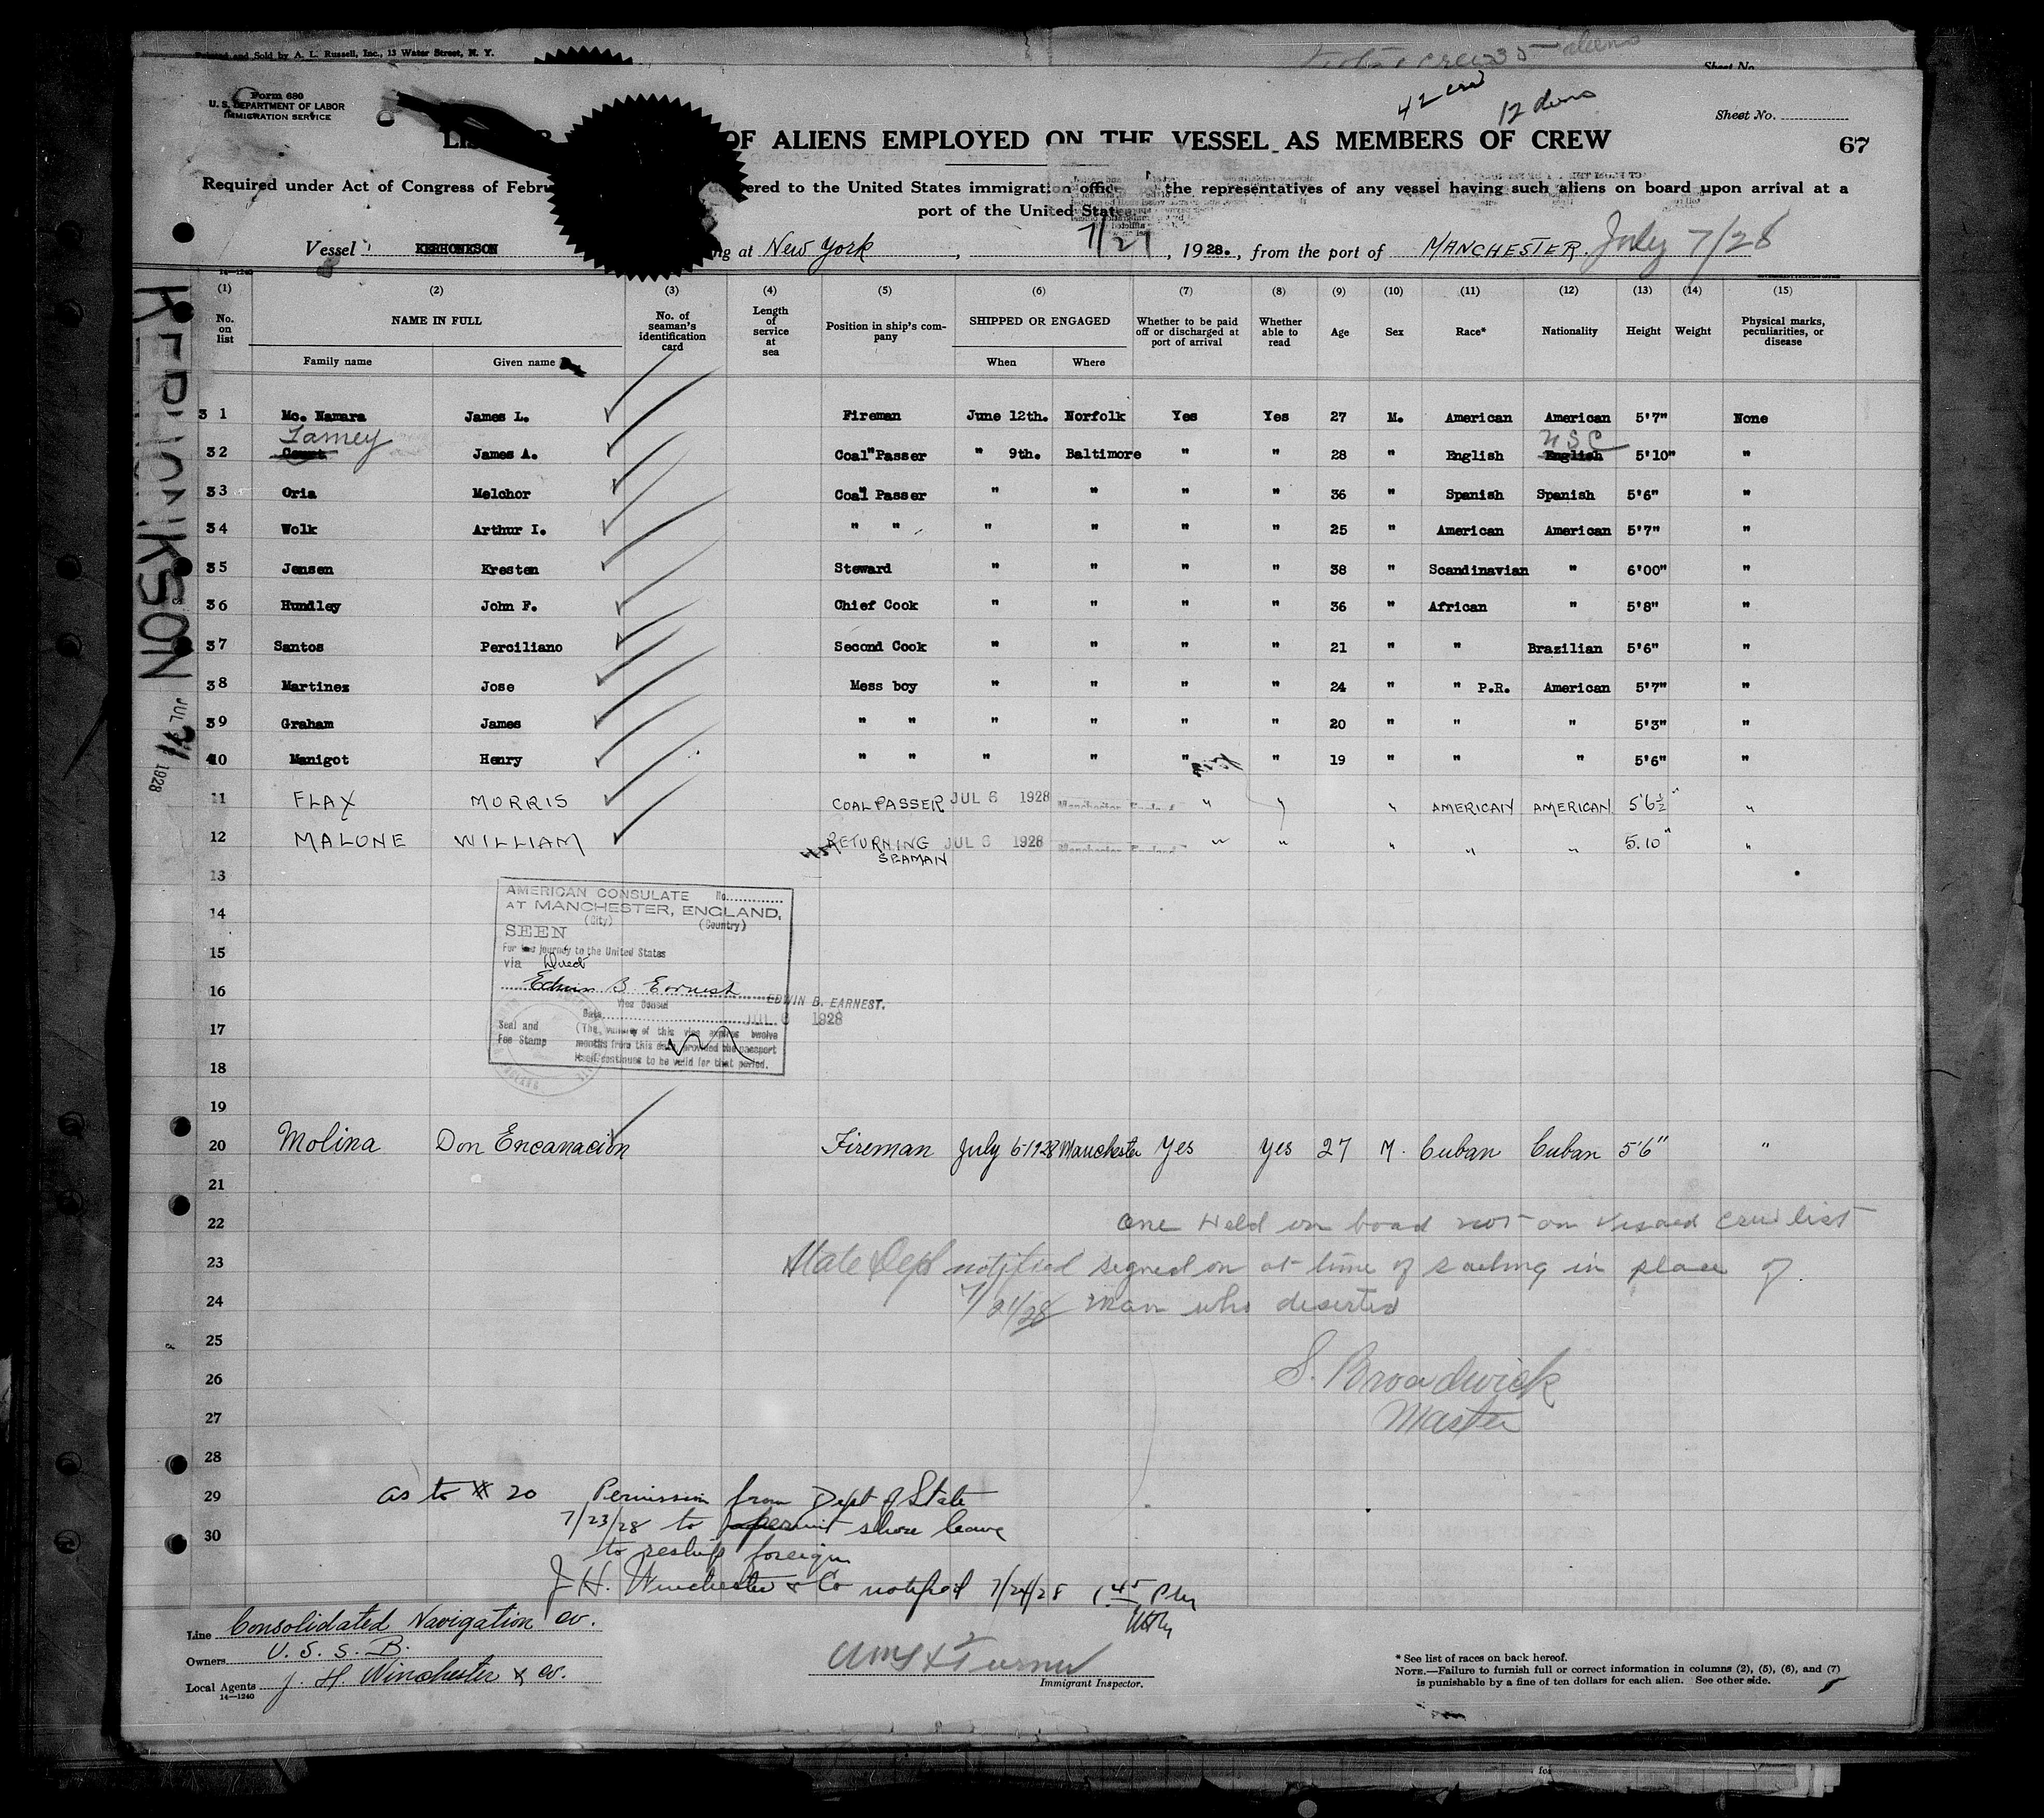 Printed and Sold by A. L. Russell, Inc., 13 Water Street, N. Y.
Sheet No.
Form 680
U. S. DEPARTMENT OF LABOR
IMMIGRATION SERVICE
42 crew
12 aliens
Sheet No.
OF ALIENS EMPLOYED ON THE VESSEL AS MEMBERS OF CREW
67
Required under Act of Congress of Febru ered to the United States immigration office the representatives of any vessel having such aliens on board upon arrival at a
port of the United States
Vessel KERHONKSON ng at New York, 7/21, 1928., from the port of MANCHESTER. July 7/28
14—1240
(1) (2) (3) (4) (5) (6) (7) (8) (9) (10) (11) (12) (13) (14) (15)
No. on list NAME IN FULL No. of seaman's identification card Length of service at sea Position in ship's company SHIPPED OR ENGAGED Whether to be paid off or discharged at port of arrival Whether able to read Age Sex Race* Nationality Height Weight Physical marks, peculiarities, or disease
Family name Given name When Where
KERHONKSON JUL 21 1928
31 Mc. Namara James L. Fireman June 12th. Norfolk Yes Yes 27 M. American American 5'7" None
Tamey USC
32 James A. Coal Passer " 9th. Baltimore " " 28 " English English 5'10" "
33 Oria Melchor Coal Passer " " " " 36 " Spanish Spanish 5'6" "
34 Wolk Arthur I. " " " " " " 25 " American American 5'7" "
35 Jensen Kresten Steward " " " " 38 " Scandinavian " 6'00" "
36 Hundley John F. Chief Cook " " " " 36 " African " 5'8" "
37 Santos Perciliano Second Cook " " " " 21 " " Brazilian 5'6" "
38 Martinez Jose Mess boy " " " " 24 " " P.R. American 5'7" "
39 Graham James " " " " " " 20 " " " 5'3" "
40 Manigot Henry " " " " " " 19 " " " 5'6" "
11 FLAX MORRIS COAL PASSER JUL 6 1928 Manchester England " " " AMERICAN AMERICAN 5'6½" "
12 MALONE WILLIAM RETURNING SEAMAN JUL 6 1928 Manchester England " " " " " 5.10" "
13
14
15
16
17
18
19
AMERICAN CONSULATE No.
AT MANCHESTER, ENGLAND,
(City) (Country)
SEEN
For the journey to the United States
via Direct
Edwin B Earnest
EDWIN B. EARNEST.
Vice Consul
Date JUL 6 1928
Seal and Fee Stamp
(The validity of this visa expires twelve
months from this date, provided the passport
itself continues to be valid for that period.
20 Molina Don Encanacion Fireman July 6-1928 Manchester Yes Yes 27 M. Cuban Cuban 5'6" "
21
22 One Held on board not on visaed crew list
23 State Dept notified signed on at time of sailing in place of
24 7/21/28 man who deserted
25
26 S. Broadwick
27 Master
28
29 as to # 20 Permission from Dept of State
30 7/23/28 to permit shore leave
to reship foreign
J. H. Winchester & Co notified 7/24/28 1 45 Pm
Line Consolidated Navigation Co.
Owners U. S. S. B.
Local Agents J. H. Winchester & Co.
14—1240
Turner
Immigrant Inspector.
* See list of races on back hereof.
NOTE.—Failure to furnish full or correct information in columns (2), (5), (6), and (7)
is punishable by a fine of ten dollars for each alien. See other side.